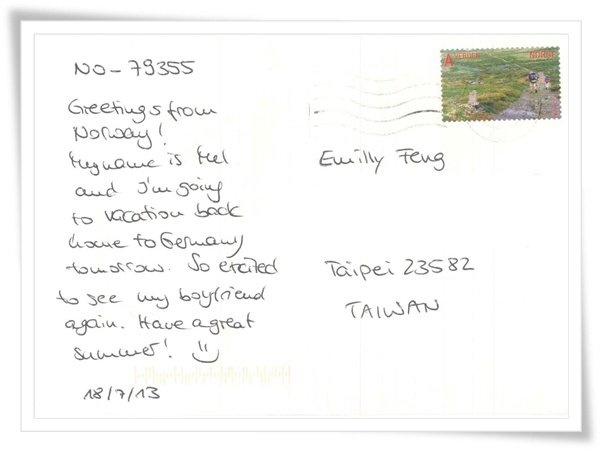 NO-79355
Greetings from
Norway!
My name is Mel
and I'm going
to vacation back
home to Germany
tomorrow. So excited
to see my boyfriend
again. Have a great
summer!
18/7/13
A VERDEN NORGE
Emilly Feng
Taipei 23582
TAIWAN